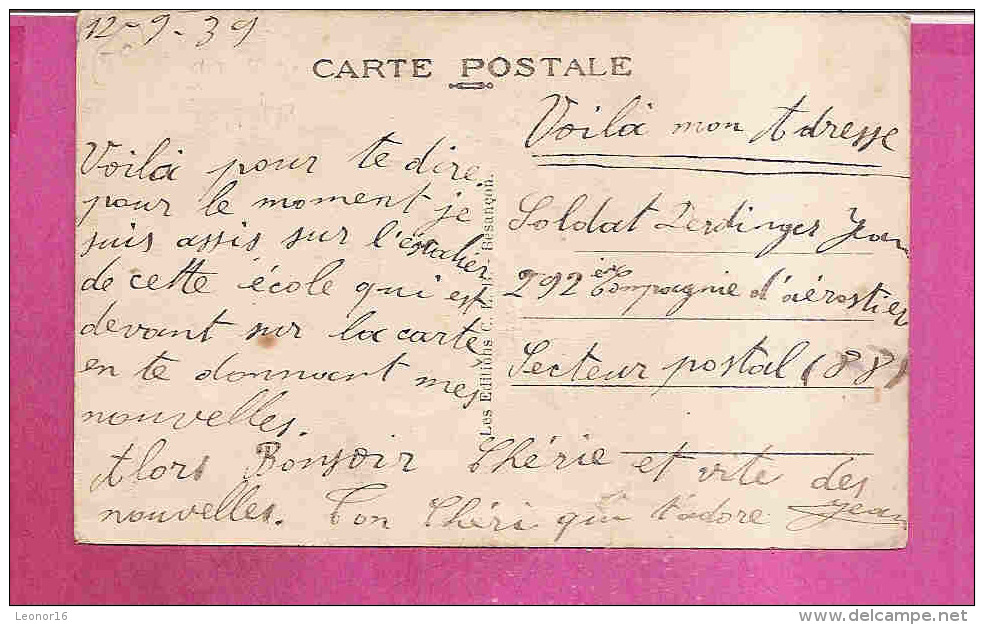 12-9-39
CARTE POSTALE
Voilà pour te dire
pour le moment je
suis assis sur l'escalier
de cette école qui est
devant sur la carte
en te donnvant mes
nouvelles.
Les Editions C. - Besançon.
Voilà mon Adresse
Soldat Zerdinger Jean
292em Compagnie d'aérostier
Secteur postal (88)
Alors Bonsoir Chérie et vite des
nouvelles. Ton Chéri qui t'adore Jean
Leonor16
www.delcampe.net